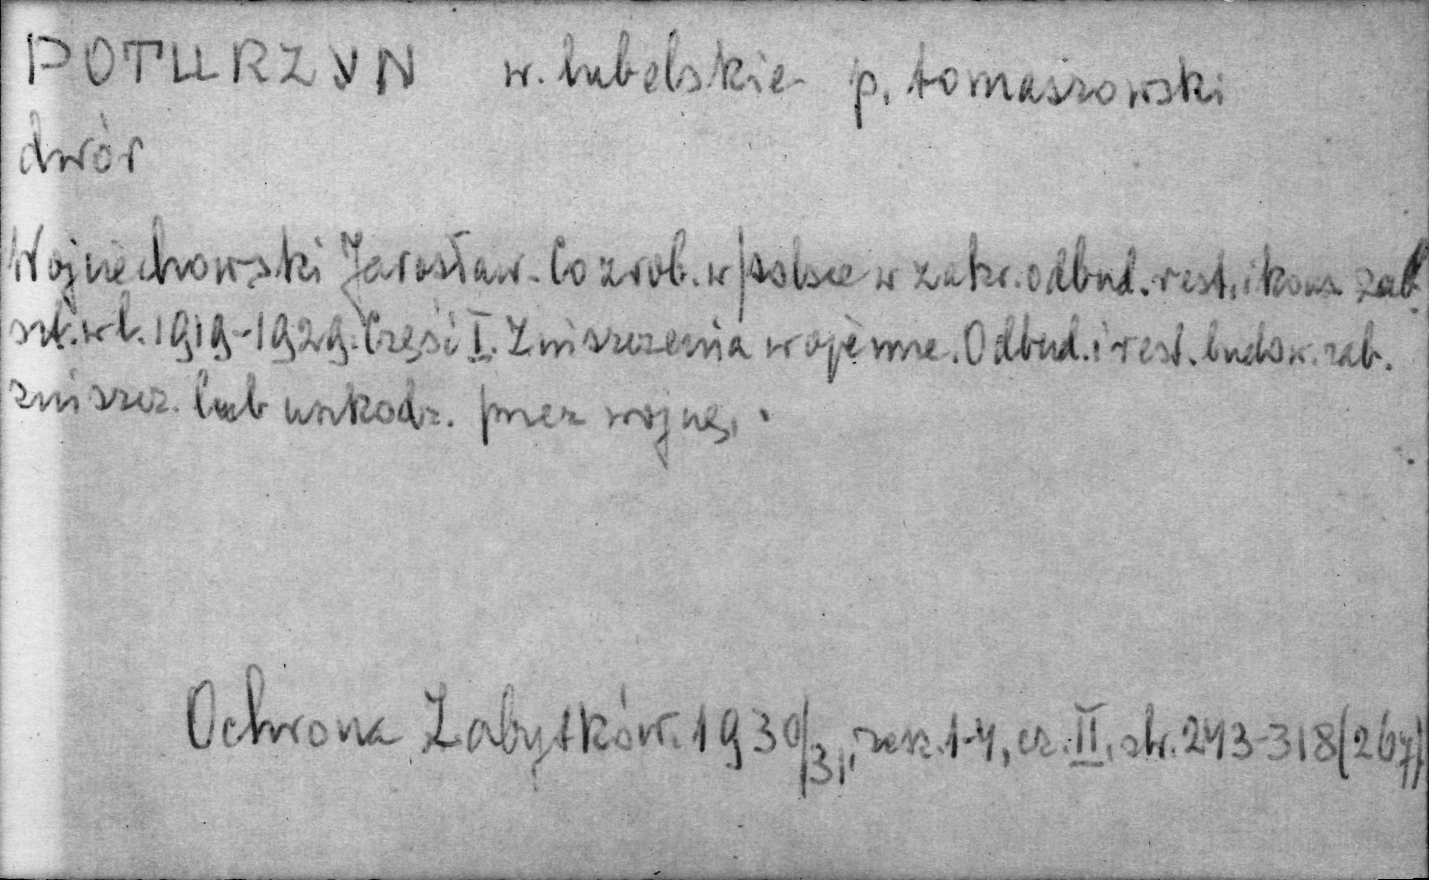 POTURZYN w. lubelskie p. tomaszowski
dwór
Wojciechowski Jarosław. Co zrob. w Polsce w zakr. odbud. rest. i kons. zab.
szt. w l. 1919-1929. Część I. Zniszczenia wojenne. Odbud. i rest. budow. zab.
zniszcz. lub uszkodz. przez wojnę.
Ochrona Zabytków. 1930/31, zesz. 1-4, cz. II, str. 243-318 (267)